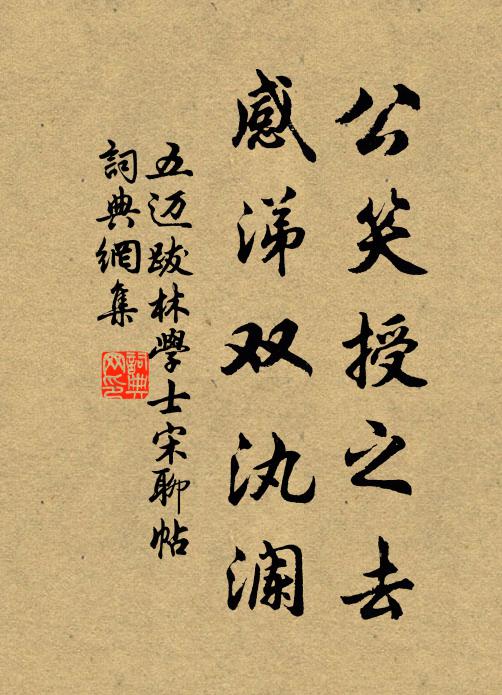 公笑授之去
感涕双汍澜
五迈跋林学士宋聊帖
詞典網集